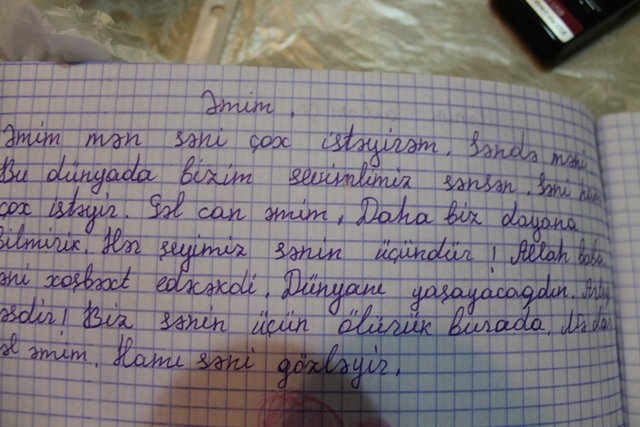 Əmim.
Əmim mən səni çox istəyirəm. Səndə məni
Bu dünyada bizim sevimlimiz sənsən. Səni hamı
çox istəyir. Gəl can əmim. Daha biz dayana
bilmirik. Hər şeyimiz sənin üçündür! Allah baba
əni xoşbəxt edəcəkdi. Dünyanı yaşayacaqdın. Artıq
əsdir! Biz sənin üçün ölürük burada. Nə
əl əmim. Hamı səni gözləyir.